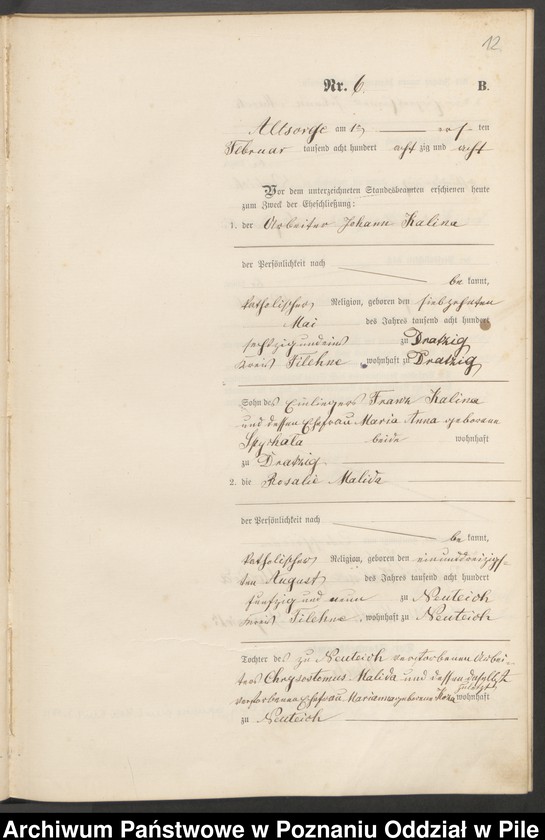 12
Nr. 6. B.
Altsorge am ersten
Februar tausend acht hundert achtzig und acht
Vor dem unterzeichneten Standesbeamten erschienen heute
zum Zweck der Eheschließung:
1. der Arbeiter Johann Kalina
der Persönlichkeit nach
bekannt,
katholischer Religion, geboren den siebzehnten
Mai des Jahres tausend acht hundert
sechszig und eins zu Dratzig
Kreis Filehne, wohnhaft zu Dratzig
Sohn des Einliegers Franz Kalina
und dessen Ehefrau Maria Anna geborene
Spychala beide wohnhaft
zu Dratzig
2. die Rosalie Malida
der Persönlichkeit nach
bekannt,
katholischer Religion, geboren den einunddreizigs-
ten August des Jahres tausend acht hundert
fünfzig und neun zu Neuteich
Kreis Filehne, wohnhaft zu Neuteich
Tochter des zu Neuteich verstorbenen Arbei-
ters Chrysostomus Malida und dessen daselbst
verstorbenen Ehefrau Marianna geborene Koza zuletzt wohnhaft
zu Neuteich
Archiwum Państwowe w Poznaniu Oddział w Pile